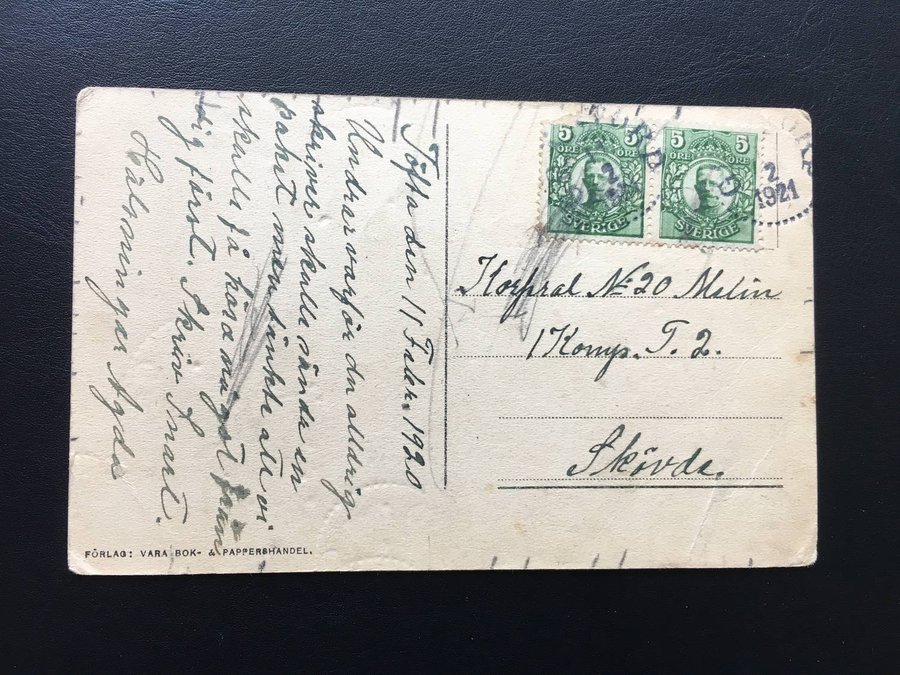 Töfta den 11 Febr. 1920
Undrar varför du alldrig
skriver skulle sända en
paket men tänkte att vi
skulle få höra något från
dig först. Skriv snart.
Hälsningar Agda
FÖRLAG: VARA BOK- & PAPPERSHANDEL.
5 5
ÖRE ÖRE
SVERIGE
5 5
ÖRE ÖRE
SVERIGE
2
1921
Korpral No 20 Malin
1 Komp. T. 2.
Skövde.